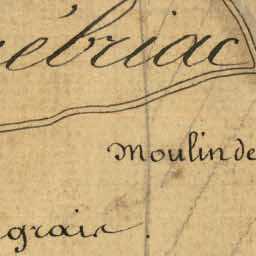 ébriac
Moulin de
grais.